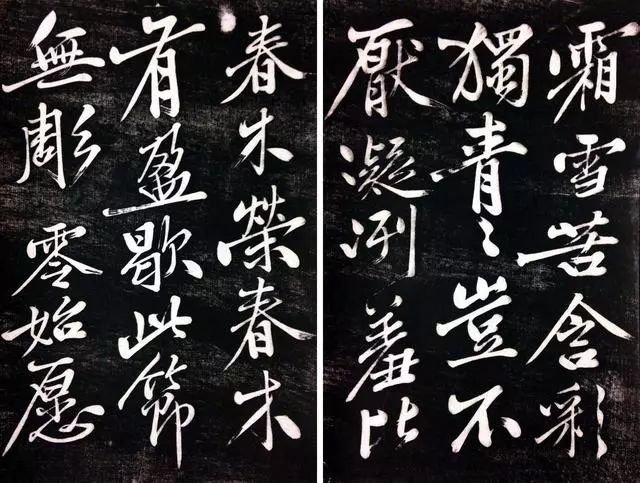 霜雪苦含彩
獨青々豈不
厭凝冽羞比
春木榮春木
有盈歇此節
無彫零始愿